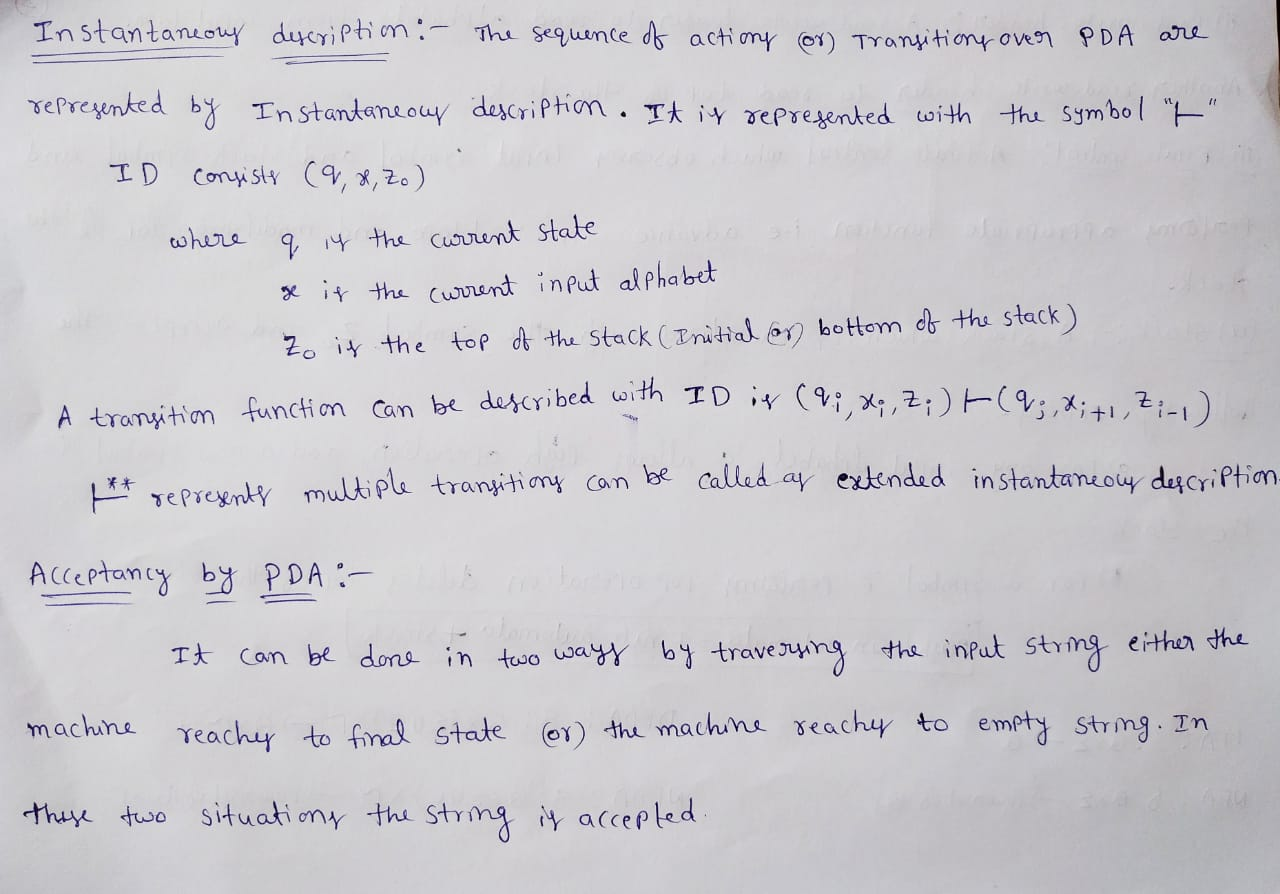 Instantaneous description :- The sequence of actions (or) Transitions over PDA are
represented by Instantaneous description. It is represented with the symbol "⊢"
ID consists (q, x, z₀)
where q is the current state
x is the current input alphabet
z₀ is the top of the stack (Initial (or) bottom of the stack)
A transition function can be described with ID is (qᵢ, xᵢ, zᵢ) ⊢ (qⱼ, xᵢ₊₁, zᵢ₋₁)
⊢** represents multiple transitions can be called as extended instantaneous description.
Acceptancy by PDA :-
It can be done in two ways by traversing the input string either the
machine reaches to final state (or) the machine reaches to empty string. In
these two situations the string is accepted.